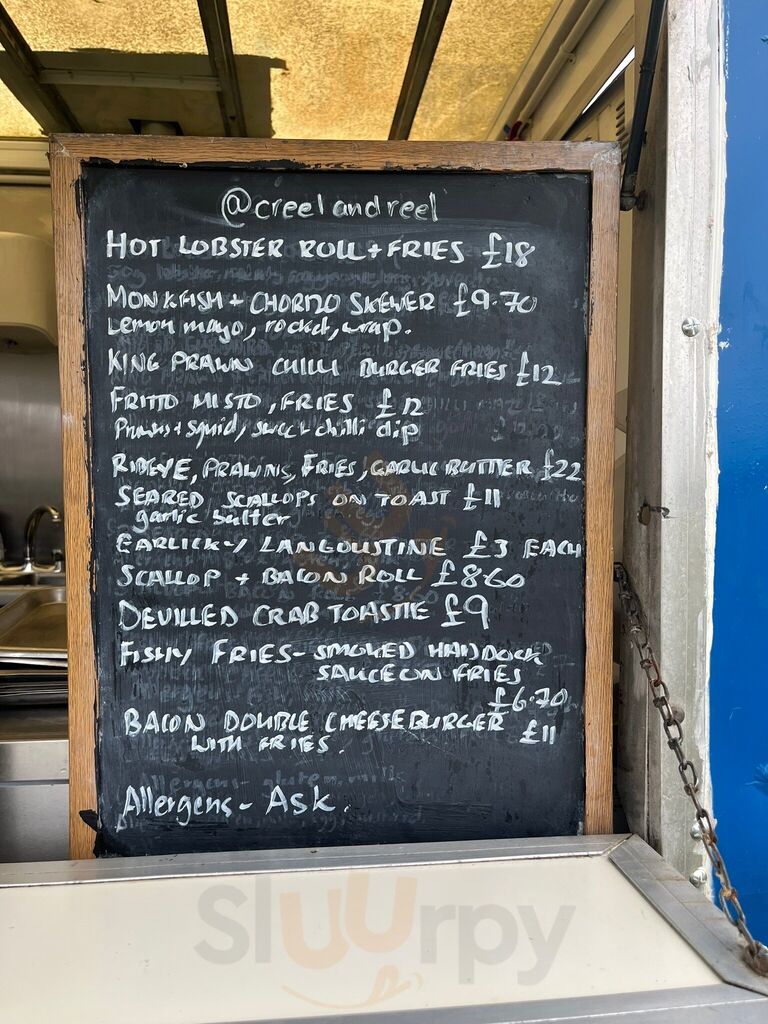 @creelandreel
HOT LOBSTER ROLL + FRIES £18
MONKFISH + CHORIZO SKEWER £9.70
Lemon mayo, rocket, wrap.
KING PRAWN CHILLI BURGER FRIES £12
FRITTO MISTO, FRIES £12
Prawns + squid, sweet chilli dip
RIBEYE, PRAWNS, FRIES, GARLIC BUTTER £22
SEARED SCALLOPS ON TOAST £11
garlic butter
GARLICKY LANGOUSTINE £3 EACH
SCALLOP + BACON ROLL £8.60
DEVILLED CRAB TOASTIE £9
FISHY FRIES - SMOKED HADDOCK
SAUCE ON FRIES
£6.70
BACON DOUBLE CHEESEBURGER £11
WITH FRIES.
Allergens - Ask.
Sluurpy